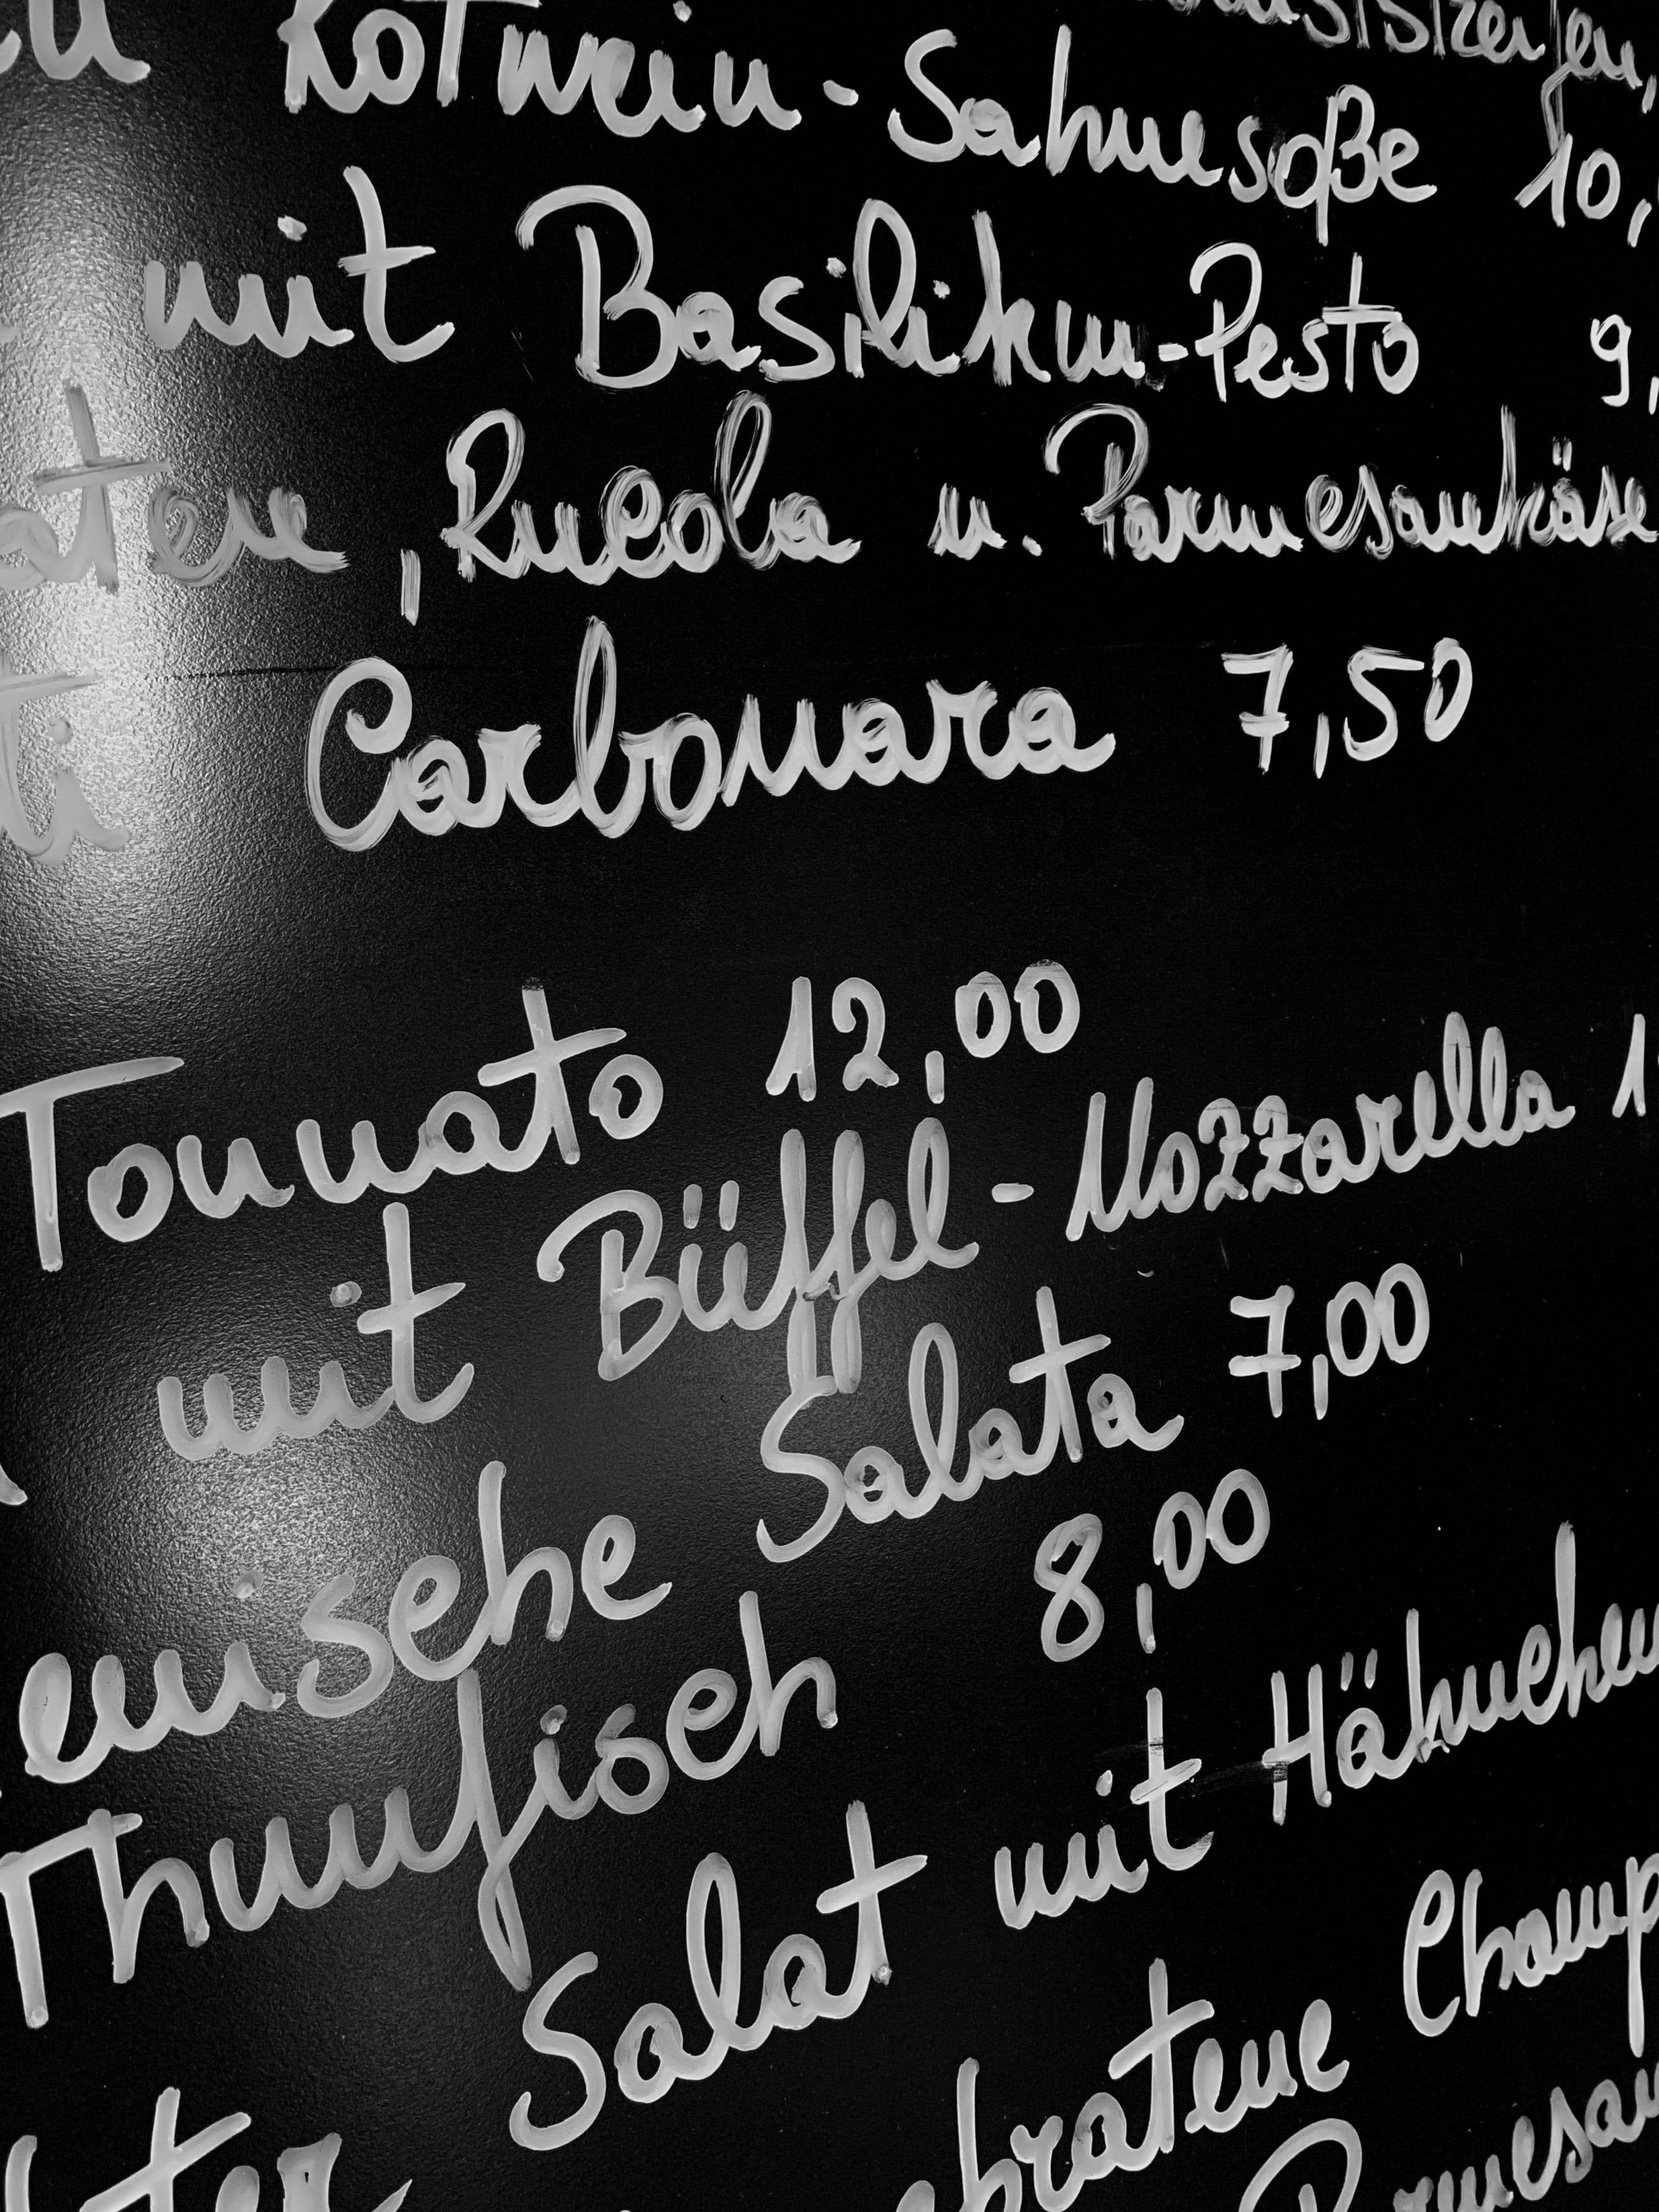 Rotwein-Sahnesoße 10,
mit Basilikum-Pesto 9,
aten, Rucola u. Parmesankäse
ti Carbonara 7,50
Tonnato 12,00
mit Büffel-Mozzarella 1
emische Salata 7,00
Thunfisch 8,00
Salat mit Hähnchen
ebratene Champ
Parmesan